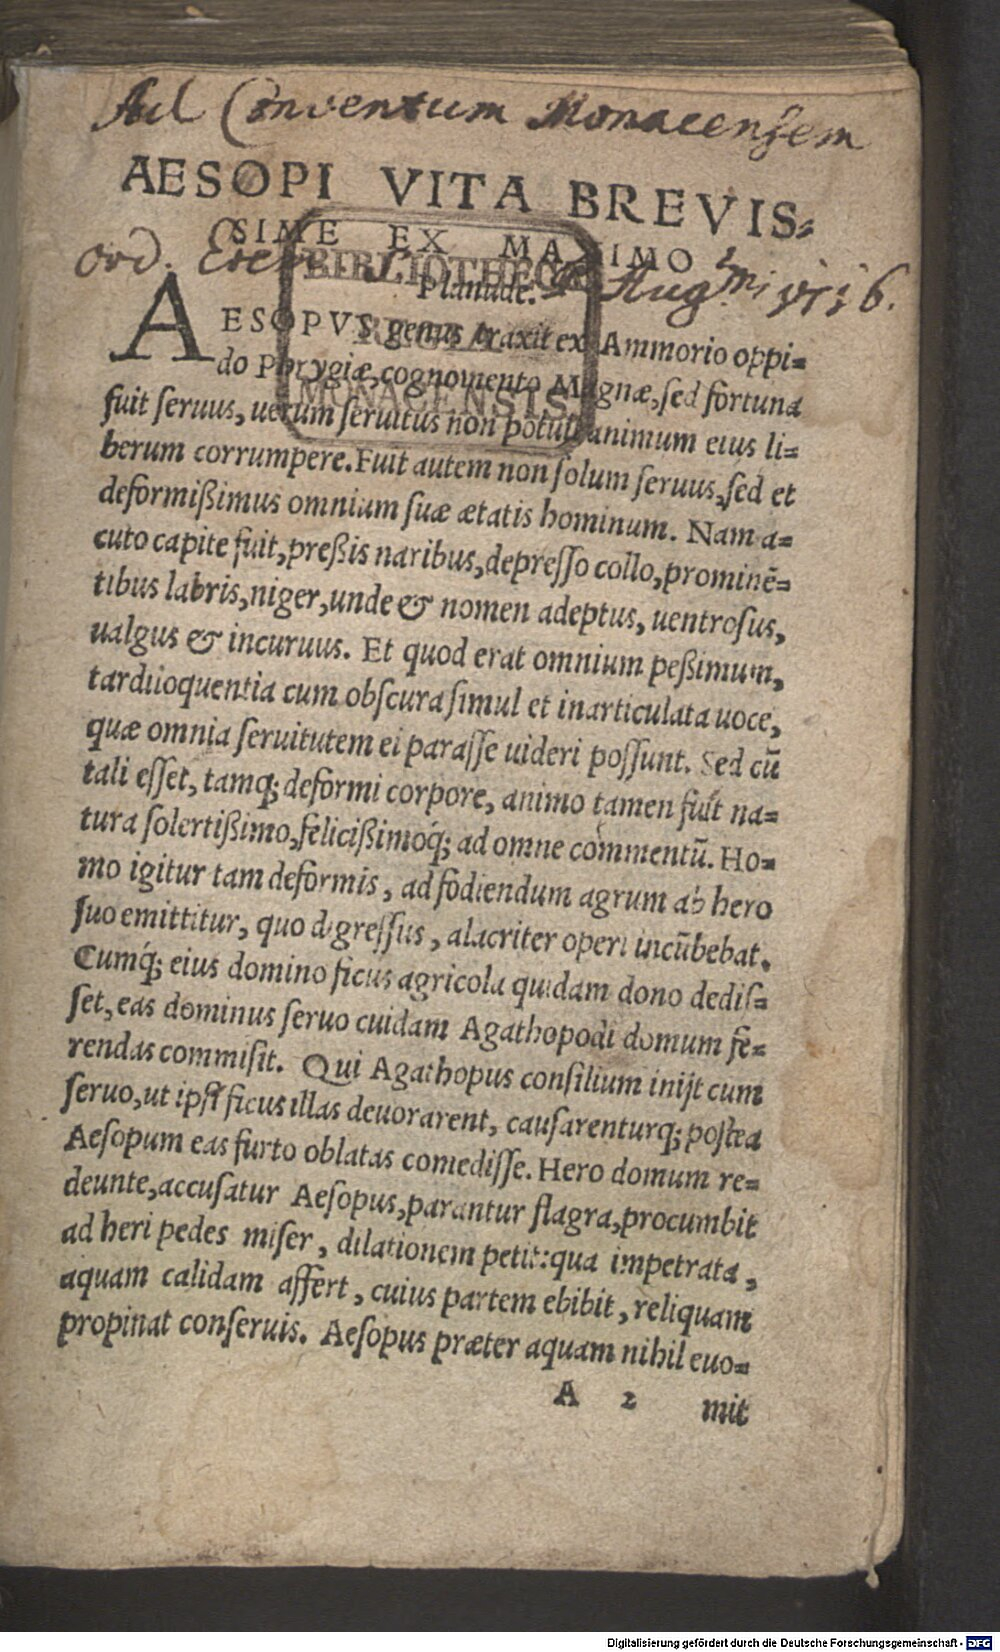 Ad Conventum Monacensem
AESOPI VITA BREVIS⸗
SIME EX MAXIMO
Planude.
ord. Erem. Augni 1716.
BIBLIOTHECA
REGIA
MONACENSIS
AESOPVS genus traxit ex Ammorio oppi⸗
do Phrygiæ, cognomento Magnæ, ſed fortuna
fuit ſeruus, uerum ſeruitus non potuit animum eius li⸗
berum corrumpere. Fuit autem non ſolum ſeruus, ſed et
deformißimus omnium ſuæ ætatis hominum. Nam a⸗
cuto capite fuit, preßis naribus, depreſſo collo, prominē⸗
tibus labris, niger, unde & nomen adeptus, uentroſus,
ualgus & incuruus. Et quod erat omnium peßimum,
tardiloquentia cum obſcura ſimul et inarticulata uoce,
quæ omnia ſeruitutem ei paraſſe uideri poſſunt. Sed cū
tali eſſet, tamq; deformi corpore, animo tamen fuit na⸗
tura ſolertißimo, felicißimoq́; ad omne commentū. Ho⸗
mo igitur tam deformis, ad fodiendum agrum ab hero
ſuo emittitur, quo digreſſus, alacriter operi incūbebat.
Cumq́; eius domino ficus agricola quidam dono dediſ⸗
ſet, eas dominus ſeruo cuidam Agathopodi domum fe⸗
rendas commiſit. Qui Agathopus conſilium inijt cum
ſeruo, ut ipſi ficus illas deuorarent, cauſarenturq; poſtea
Aeſopum eas furto oblatas comediſſe. Hero domum re⸗
deunte, accuſatur Aeſopus, parantur flagra, procumbit
ad heri pedes miſer, dilationem petit: qua impetrata,
aquam calidam affert, cuius partem ebibit, reliquam
propinat conſeruis. Aeſopus præter aquam nihil euo⸗
A 2 mit
Digitalisierung gefördert durch die Deutsche Forschungsgemeinschaft - DFG